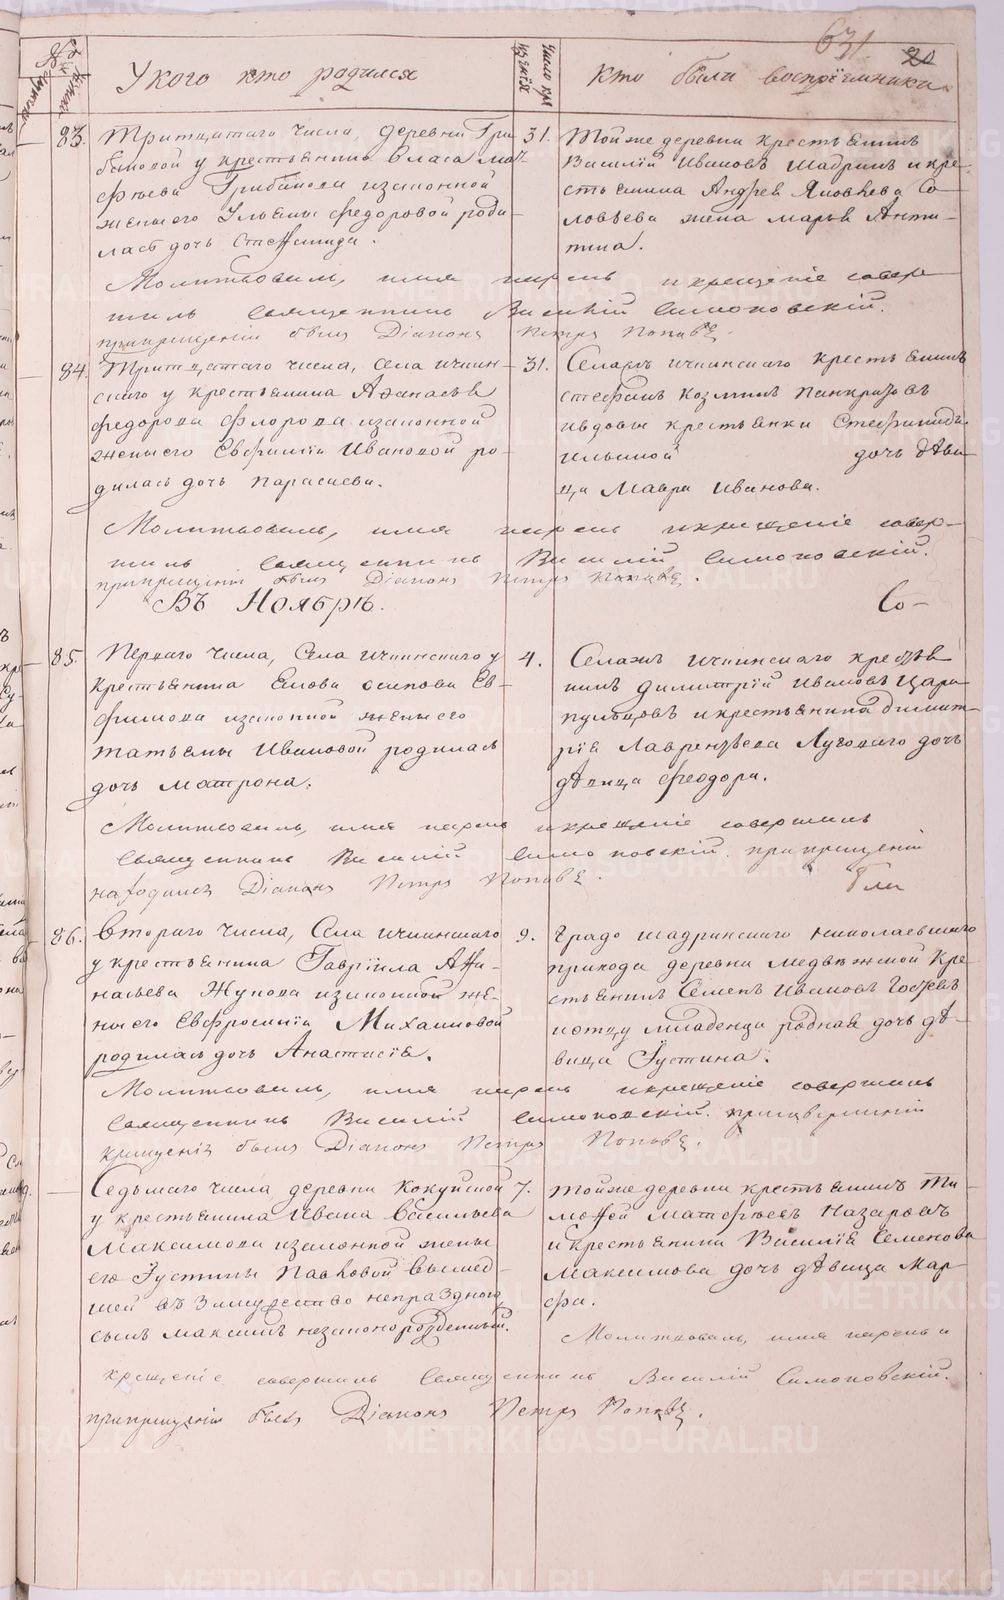 631
20
№
У кого кто родился
Число кре
щенія
Кто были воспріемники
83.
Тритцатаго числа, деревни Гри
бановой у крестьянина Власа Ма
фѣева Грибанова и законной
жены его Ульяны Федоровой роди-
лась дочь Стефанида.
31.
Той же деревни крестьянинъ
Василій Ивановъ Шадринъ и кре-
стьянина Андрея Яковлева Со-
ловьева жена Марья Анти-
пина.
Молитвовалъ, имя нарекъ и крещеніе совер
шилъ Священникъ Василій Симоновскій.
при крещеніи былъ Діаконъ Петръ Поповъ.
84.
Тритцатаго числа, села Ичкин-
скаго у крестьянина Афанасья
Федорова Флорова и законной
жены его Евфиміи Ивановой ро-
дилась дочь Параскева.
31.
Села Ичкинскаго крестьянинъ
Стефанъ Козминъ Панкратовъ
и вдовы крестьянки Стефаниды
Ильиной дочь дѣви-
ца Мавра Иванова.
Молитвовалъ, имя нарекъ и крещеніе совер-
шилъ Священникъ Василій Симоновскій.
при крещеніи былъ Діаконъ Петръ Поповъ.
Въ Ноябрѣ.
Со-
85.
Перваго числа, Села Ичкинскаго у
крестьянина Якова Осипова Ев-
фимова и законной жены его
Татьяны Ивановой родилась
дочь Матрона.
4.
Села Ичкинскаго крестья
нинъ Димитрій Ивановъ Цара
пульцовъ и крестьянина Димит-
рія Лаврентьева Луговаго дочь
дѣвица Феодора.
Молитвовалъ, имя нарекъ и крещеніе совершилъ
Священникъ Василій Симоновскій. при крещеніи
находился Діаконъ Петръ Поповъ.
86.
Втораго числа, Села Ичкинскаго
у крестьянина Гавріила Аѳа-
насьева Жукова и законной же-
ны его Евфросиніи Михайловой
родилась дочь Анастасія.
9.
Градо Шадринскаго Николаевскаго
прихода деревни Медвѣжей кре-
стьянинъ Семенъ Ивановъ
и отцу младенца родная дочь дѣ-
вица Іустина.
Молитвовалъ, имя нарекъ и крещеніе совершилъ
Священникъ Василій Симоновскій. при
крещеніи былъ Діаконъ Петръ Поповъ.
Седьмаго числа деревни Кокуйской
у крестьянина Ивана Васильева
Максимова и законной жены
его Іустины Павловой вышед-
шей въ замужество непраздною
сынъ Максимъ незаконорожденный.
7.
Той же деревни крестьянинъ Ти-
моѳей Матфѣевъ Назаровъ
и крестьянина Василія Семенова
Максимова дочь дѣвица Мар-
фа.
Молитвовалъ, имя нарекъ и
крещеніе совершилъ Священникъ Василій Симоновскій.
при крещеніи былъ Діаконъ Петръ Поповъ.
METRIKI.GASO-URAL.RU